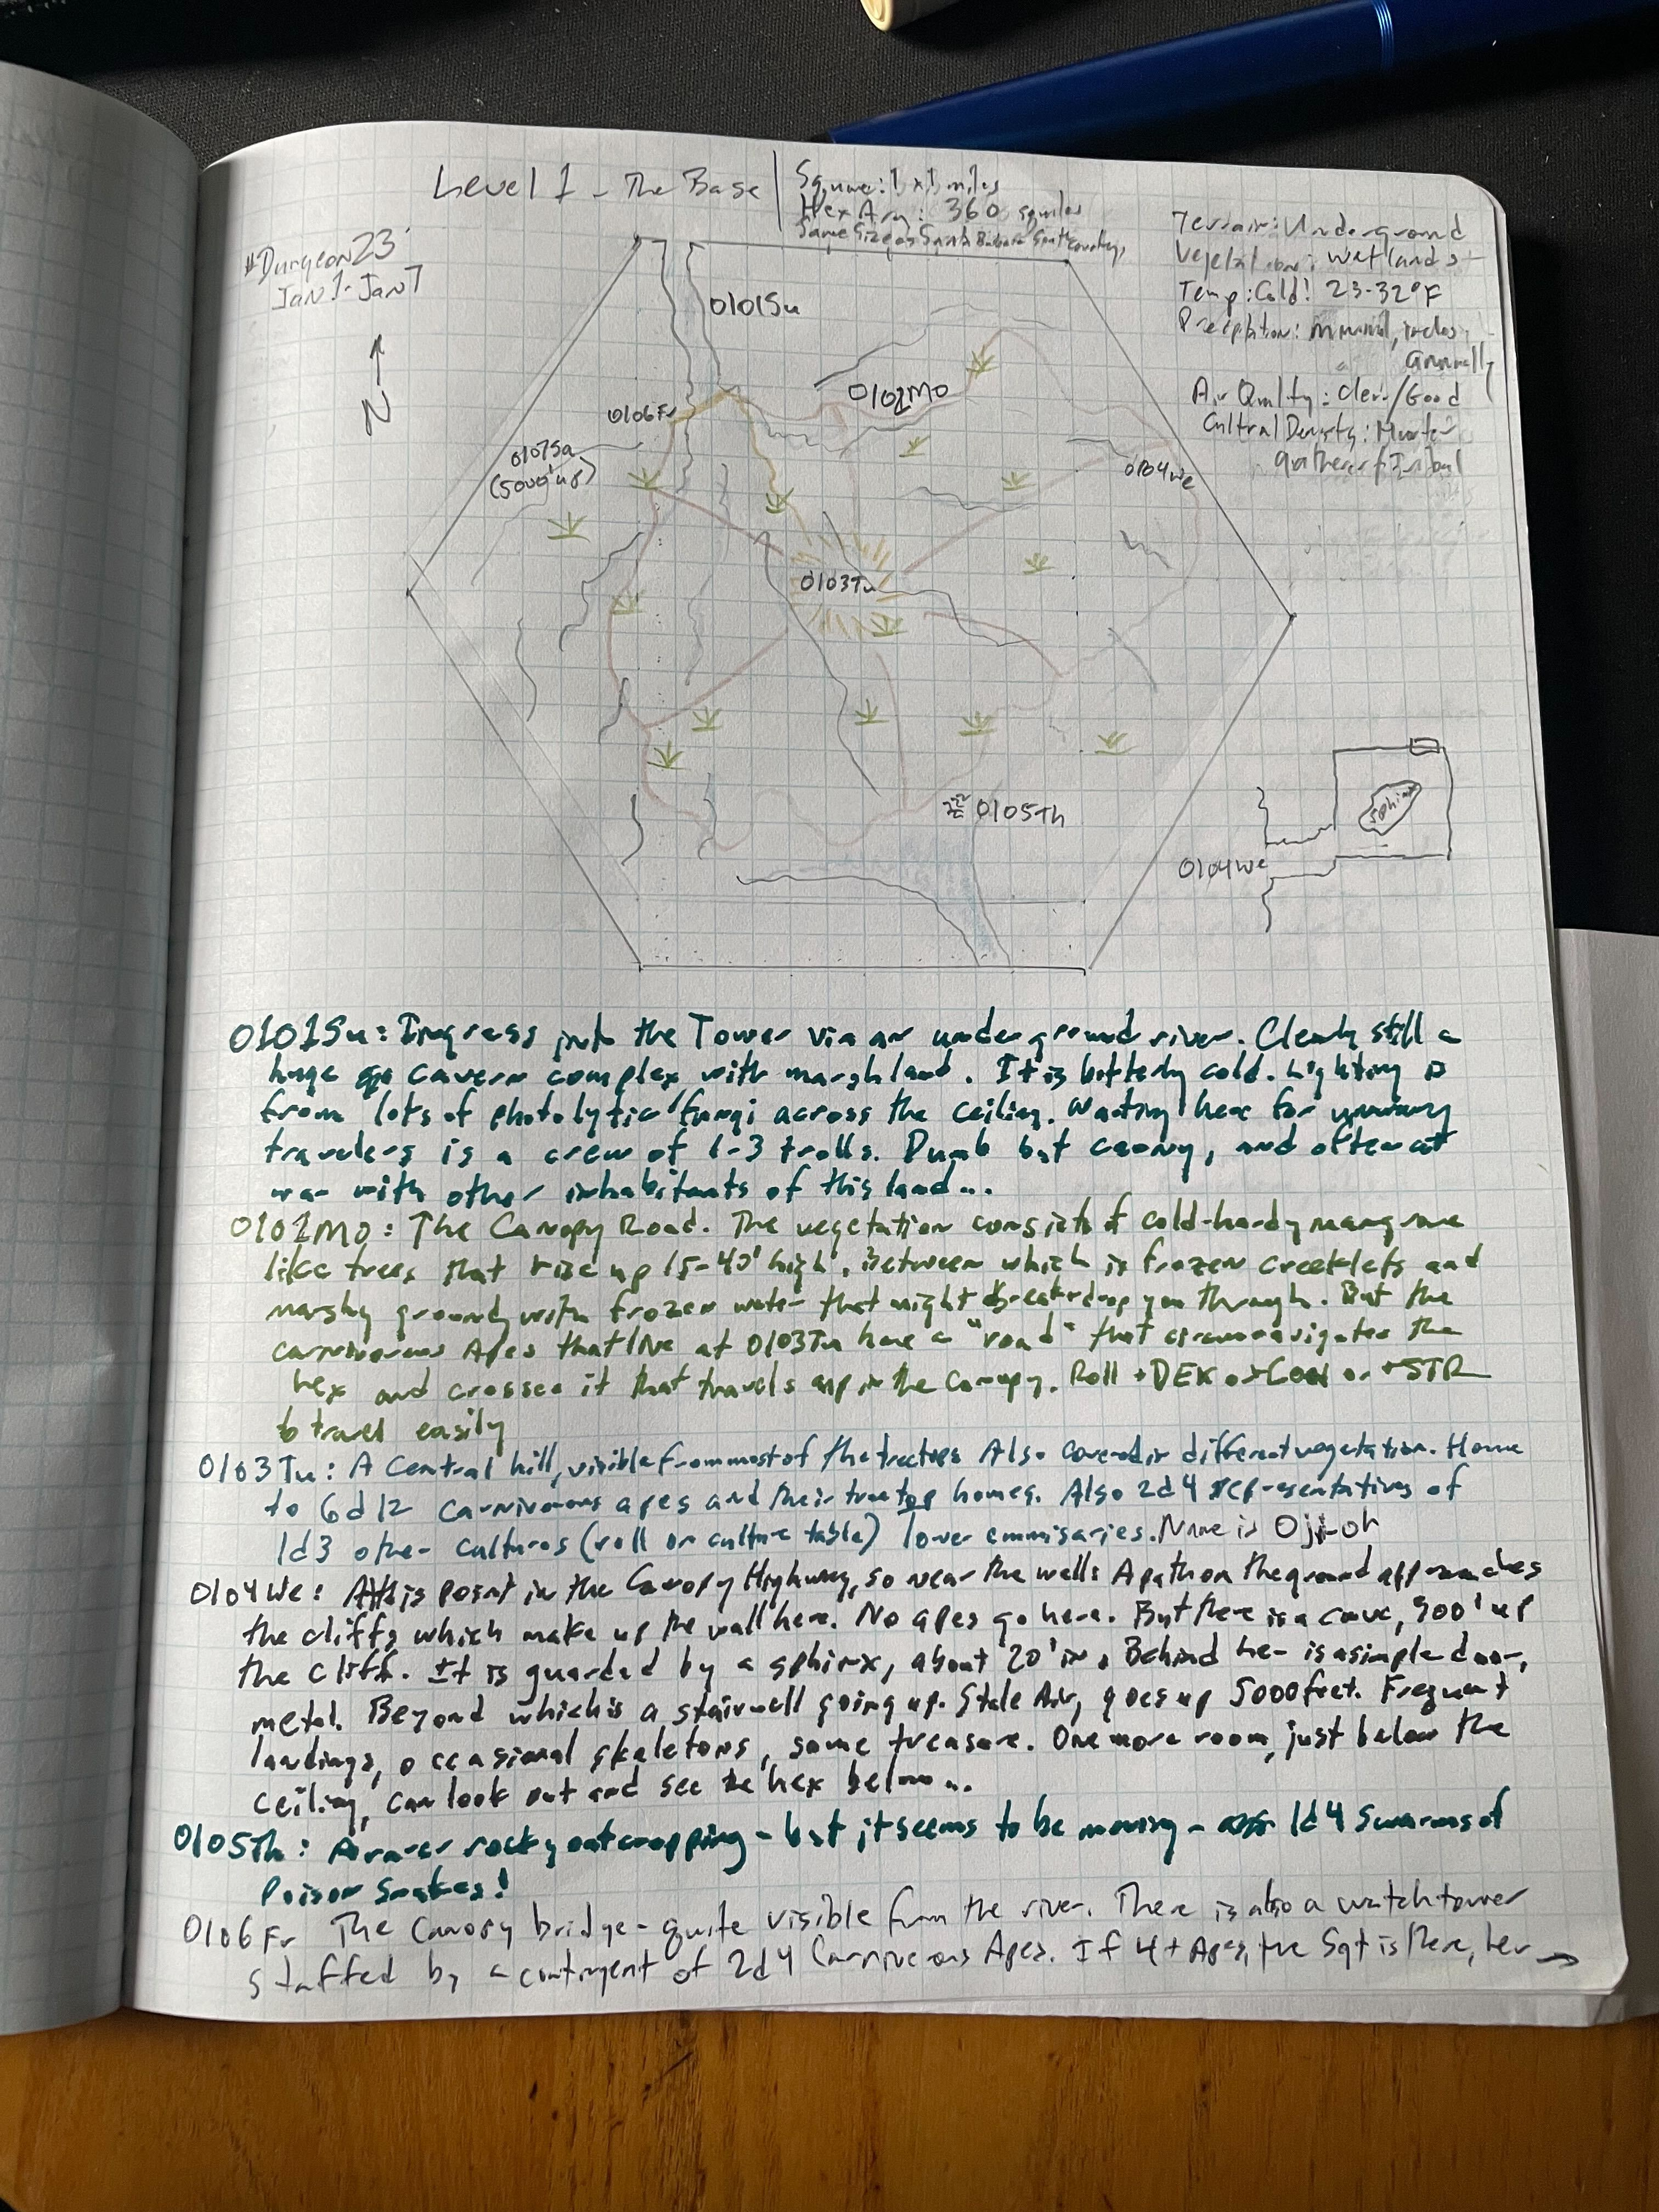 Level 1 - The Base
Square: 1 x 1 miles
Hex Area: 360 sqmiles
Same Size as Santa Barbara South
#Dungeon23
Jan 1 - Jan 7
N
Terrain: Underground
Vegetation: Wetlands
Temp: Cold! 23-32°F
Precipitation: minimal, inches
annually
Air Quality: Clear/Good
Cultural Density: Hunter
gatherer/Tribal
0101Su
0102Mo
0106Fr
0107Sa
(5000' up)
0104We
0103Tu
0105Th
Sphinx
0104We
0101Su: Ingress into the Tower via an underground river. Clearly still a
huge cavern complex with marshland. It is bitterly cold. Lighting is
from lots of photolytic fungi across the ceiling. Waiting here for unwary
travelers is a crew of 1-3 trolls. Dumb but canny, and often at
war with other inhabitants of this land...
0102Mo: The Canopy Road. The vegetation consists of cold-hardy mangrove
like trees that rise up 15-40' high. Between which is frozen creeklets and
marshy ground with frozen water that might break drop you through. But the
carnivorous Apes that live at 0103Tu have a "road" that circumnavigates the
hex and crosses it that travels up in the canopy. Roll +DEX or +Con or +STR
to travel easily
0103Tu: A Central hill, visible from most of the treetops. Also covered in different vegetation. Home
to 6d12 carnivorous apes and their treetop homes. Also 2d4 representatives of
1d3 other cultures (roll on culture table) lower emmisaries. Name is Oji-oh
0104We: At this point in the Canopy Highway, so near the walls A path on the ground approaches
the cliffs which make up the wall here. No apes go here. But there is a cave, 900' up
the cliff. It is guarded by a sphinx, about 20' in. Behind her is a simple door,
metal. Beyond which is a stairwell going up. Stale Air, goes up 5000 feet. Frequent
landings, occasional skeletons, some treasure. One more room, just below the
ceiling, can look out and see the hex below...
0105Th: A rarer rocky outcropping - but it seems to be moving - 1d4 Swarms of
Poison Snakes!
0106Fr The Canopy bridge - quite visible from the river. There is also a watchtower
staffed by a contingent of 2d4 Carnivorous Apes. If 4+ Apes, the Sgt is there, her →